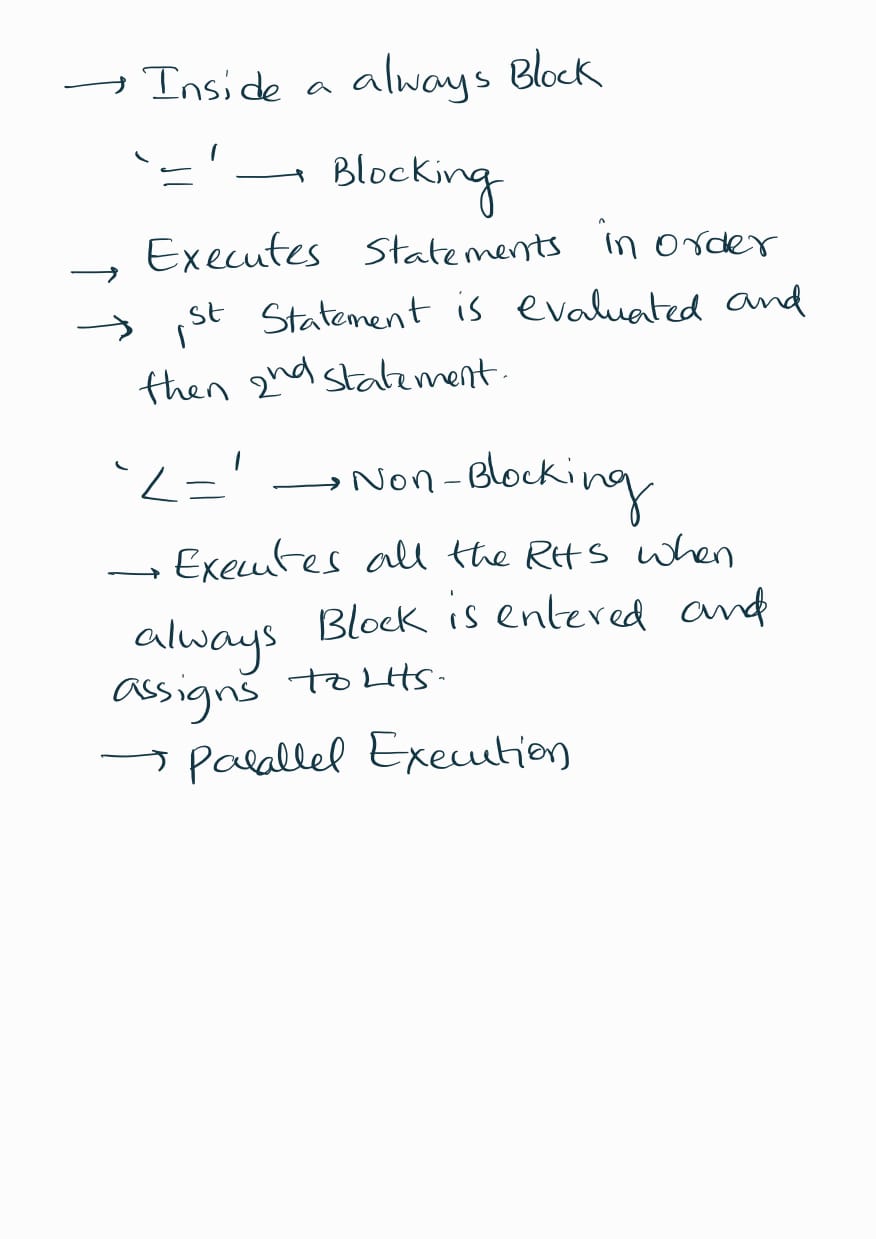 → Inside a always Block
‘=’ → Blocking
→ Executes Statements in order
→ 1st Statement is evaluated and
then 2nd statement.
‘<=’ → Non-Blocking
→ Executes all the RHS when
always Block is entered and
assigns to LHS.
→ Parallel Execution